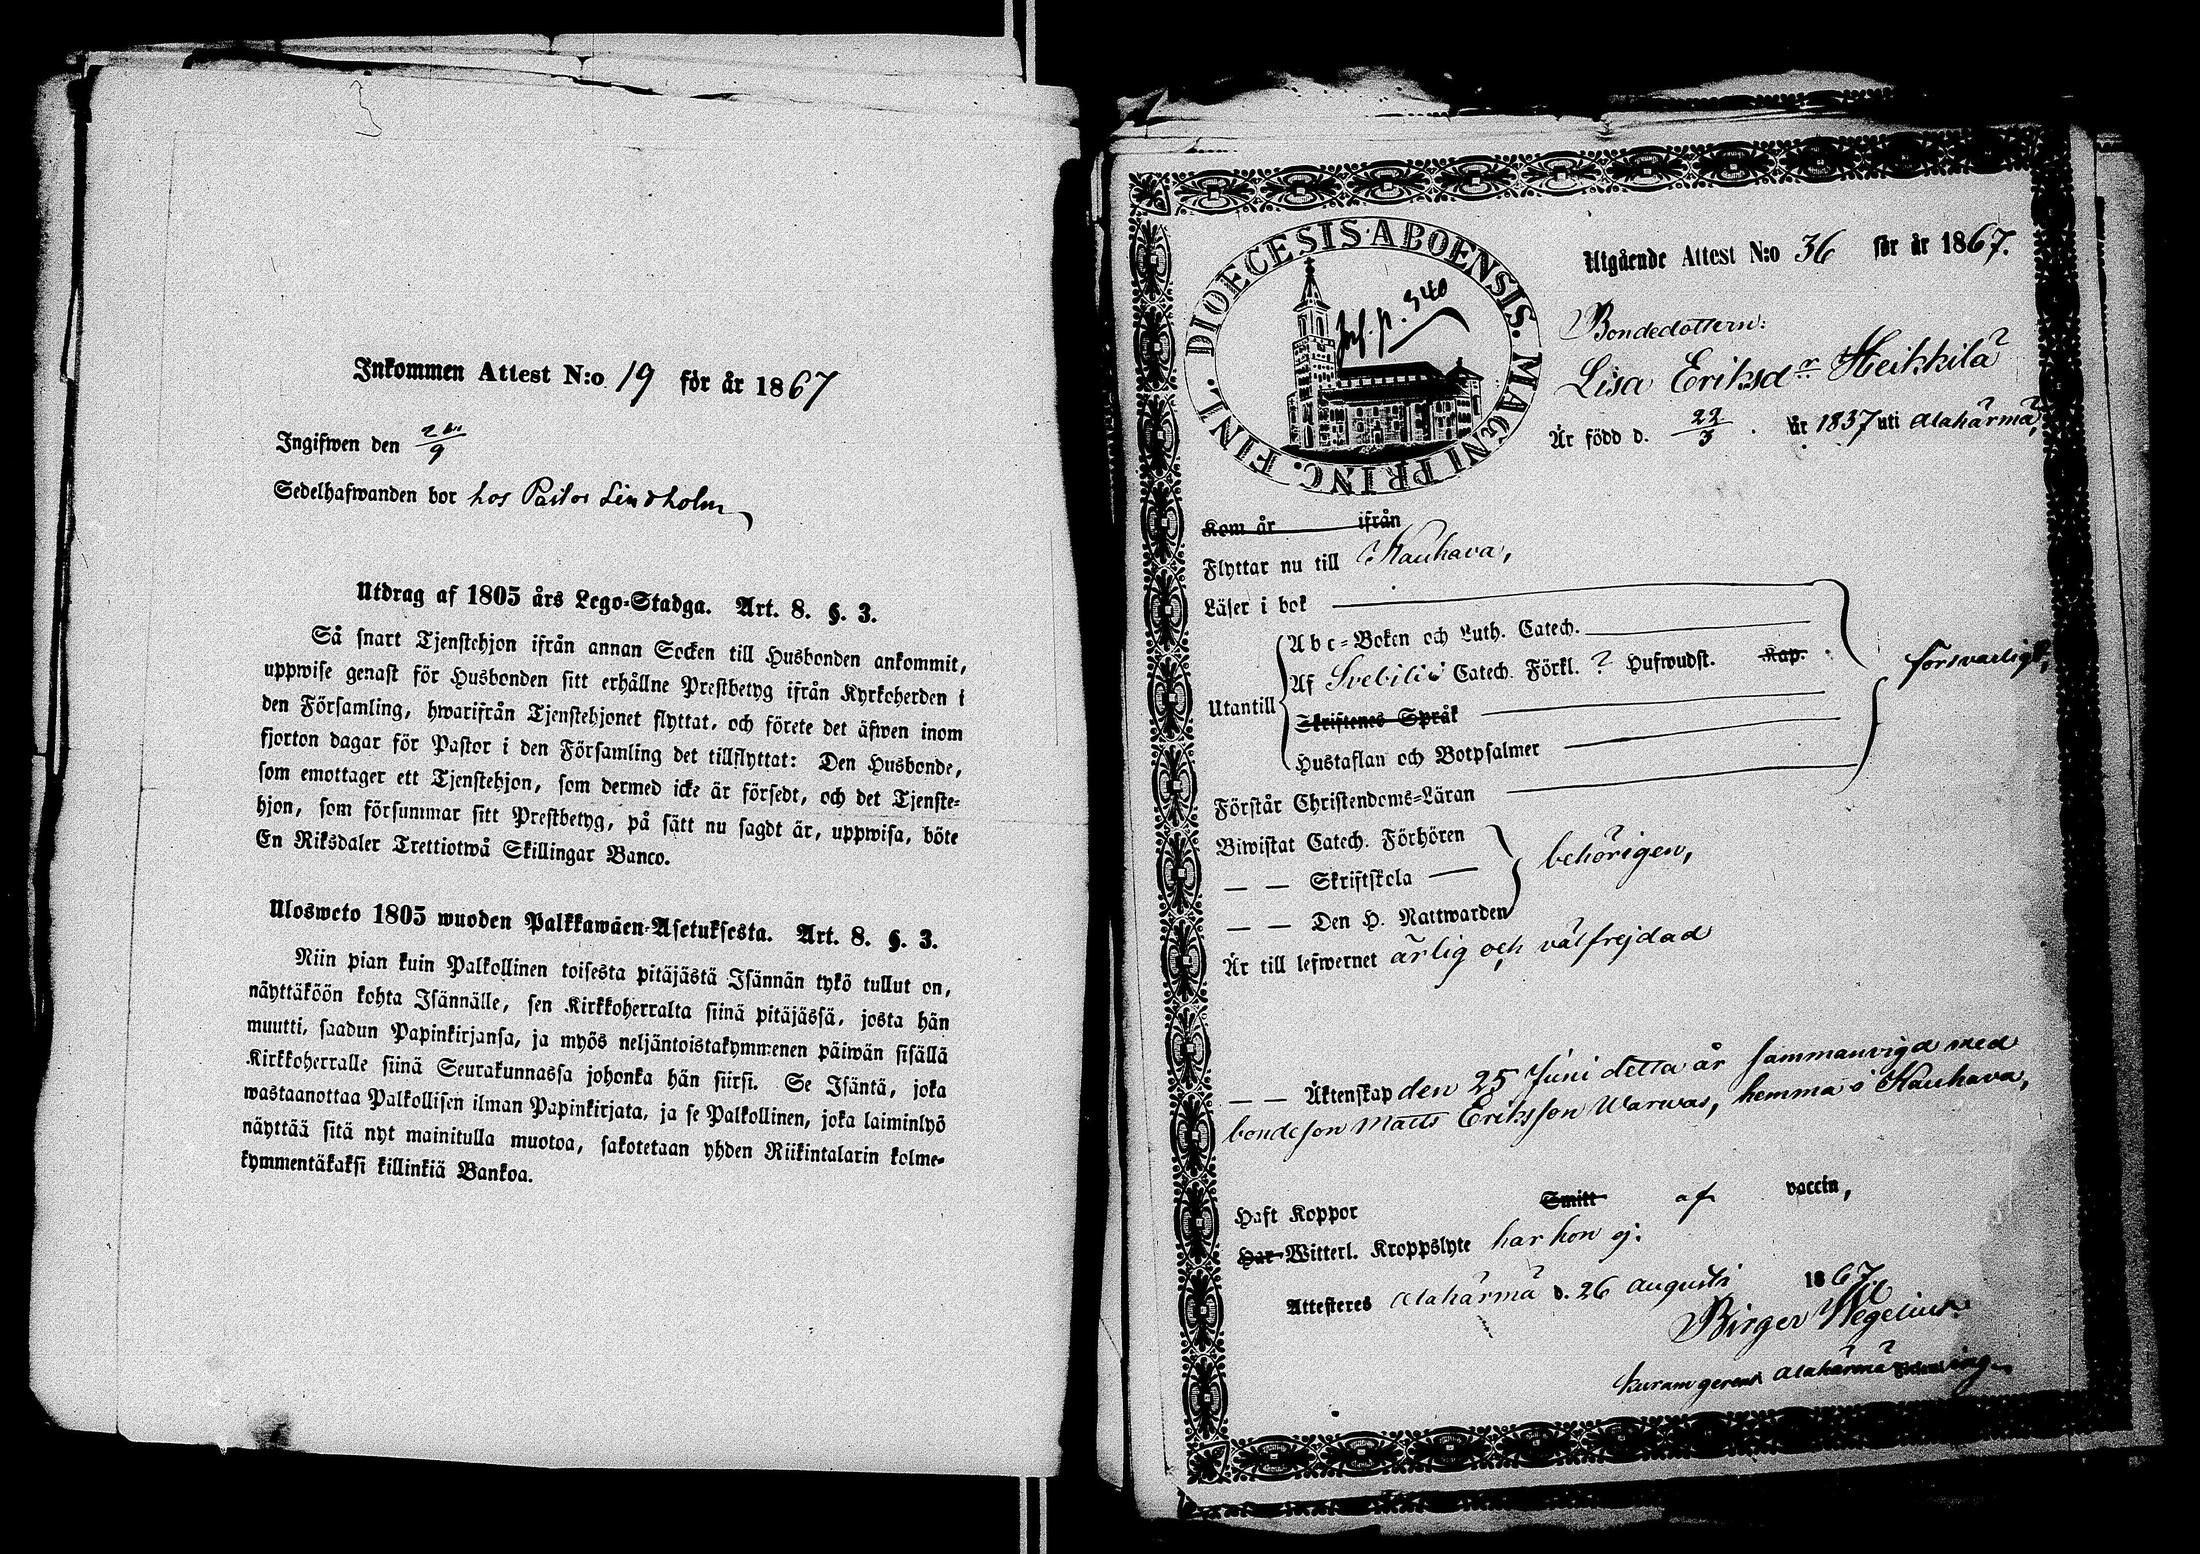 Inkommen Attest N:o 19 för år 1867
Ingifwen den
Sedelhafwanden bor hos Pastor Lindholm
Utdrag af 1805 års Lego-Stadga. Art. 8. §. 3.
Så snart Tjenstehjon ifrån annan Socken till Husbonden ankommit,
uppwise genast för Husbonden sitt erhållne Prestbetyg ifrån Kyrkoherden i
den Församling, hwarifrån Tjenstehjonet flyttat, och förete det äfwen inom
fjorton dagar för Pastor i den Församling det tillflyttat: Den Husbonde,
som emottager ett Tjenstehjon, som dermed icke är försedt, och det Tjenste-
hjon, som försummar sitt Prestbetyg, på sätt nu sagdt är, uppwisa, böte
En Riksdaler Trettiotwå Skillingar Banco.
Ulosweto 1805 wuoden Palkkawäen-Asetuksesta. Art. 8. §. 3.
Niin pian kuin Palkollinen toisesta pitäjästä Isännän tykö tullut on,
näyttäköön kohta Isännälle, sen Kirkkoherralta siinä pitäjässä, josta hän
muutti, saadun Papinkirjansa, ja myös neljäntoistakymmenen päiwän sisällä
Kirkkoherralle siinä Seurakunnassa johonka hän siirsi. Se Isäntä, joka
wastaanottaa Palkollisen ilman Papinkirjata, ja se Palkollinen, joka laiminlyö
näyttää sitä nyt mainitulla muotoa, sakotetaan yhden Riikintalarin kolme-
kymmentäkaksi killinkiä Bankoa.
DIOECESIS ABOENSIS. MAGNI PRINC. FINL.
Inf. p. 340
Utgående Attest N:o 36 för år 1867.
Bondedottern:
Lisa Eriksdr Heikkilä
Är född d. 22/3. år 1837 uti Alahärmä,
Kom år ifrån
Flyttar nu till Kauhava,
Läser i bok
Utantill
Abc-Boken och Luth. Catech.
Af Svebilii Catech. Förkl. 2 Hufwudst. Kap.
Skriftenes Språk
Hustaflan och Botpsalmer
Förstår Christendoms-Läran
försvarligt,
Biwistat Catech. Förhören
— — Skriftskola —
— — Den H. Nattwarden
behörigen,
Är till lefwernet ärlig och välfrejdad
— — Äktenskap den 25 Juni detta år sammanvigd med
bondeson Matts Eriksson Warwas, hemma i Kauhava,
Haft Koppor Smitt af vaccin,
Har Witterl. Kroppslyte har hon ej.
Attesteres Alahärmä d. 26 Augusti 1867
Birger Wegelius.
Alahärmä